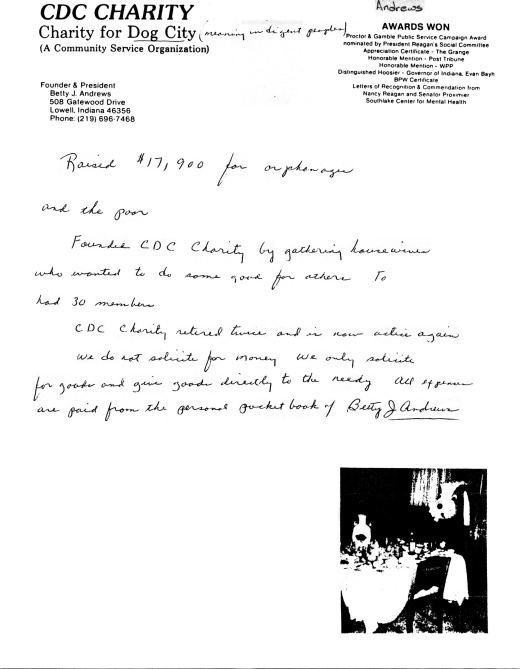 Andrews
CDC CHARITY
Charity for Dog City (meaning indigent peoples)
(A Community Service Organization)
AWARDS WON
Proctor & Gamble Public Service Campaign Award
nominated by President Reagan's Social Committee
Appreciation Certificate - The Grange
Honorable Mention - Post Tribune
Honorable Mention - WPP
Distinguished Hoosier - Governor of Indiana, Evan Bayh
BPW Certificate
Letters of Recognition & Commendation from
Nancy Reagan and Senator Proxmier
Southlake Center for Mental Health
Founder & President
Betty J. Andrews
508 Gatewood Drive
Lowell, Indiana 46356
Phone: (219) 696-7468
Raised $17,900 for orphanages
and the poor
Founded CDC Charity by gathering housewives
who wanted to do some good for others To
had 30 members
CDC Charity retired twice and is now active again
We do not solicite for money We only solicite
for goods and give goods directly to the needy All expenses
are paid from the personal pocket book of Betty J Andrews